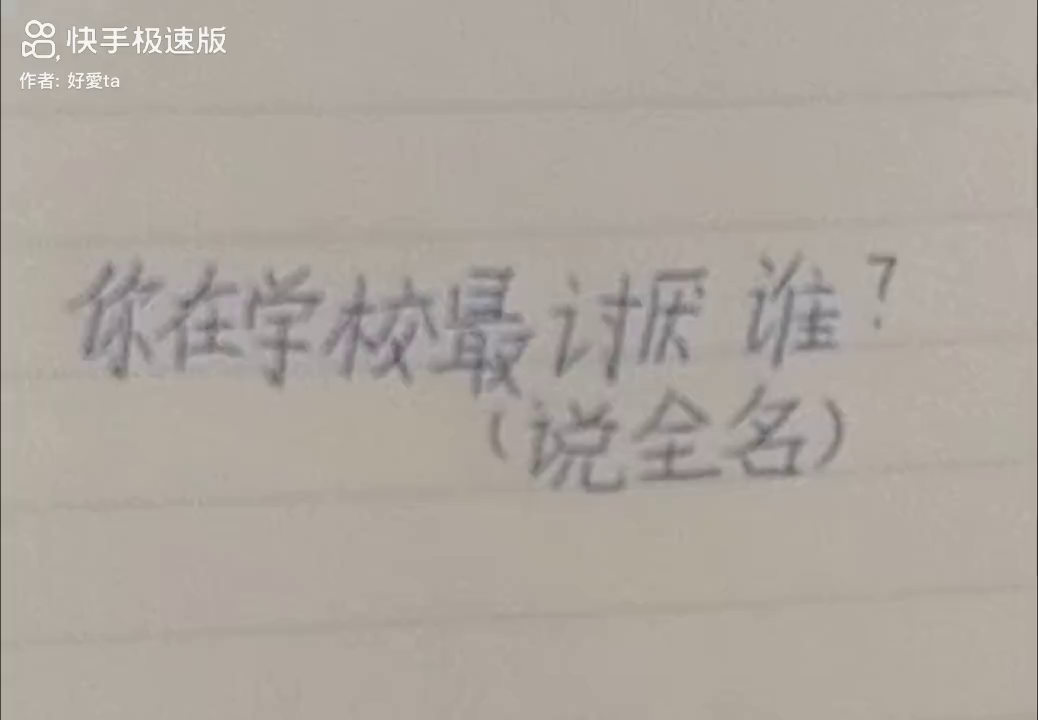 快手极速版
作者: 好愛ta
你在学校最讨厌 谁?
(说全名)